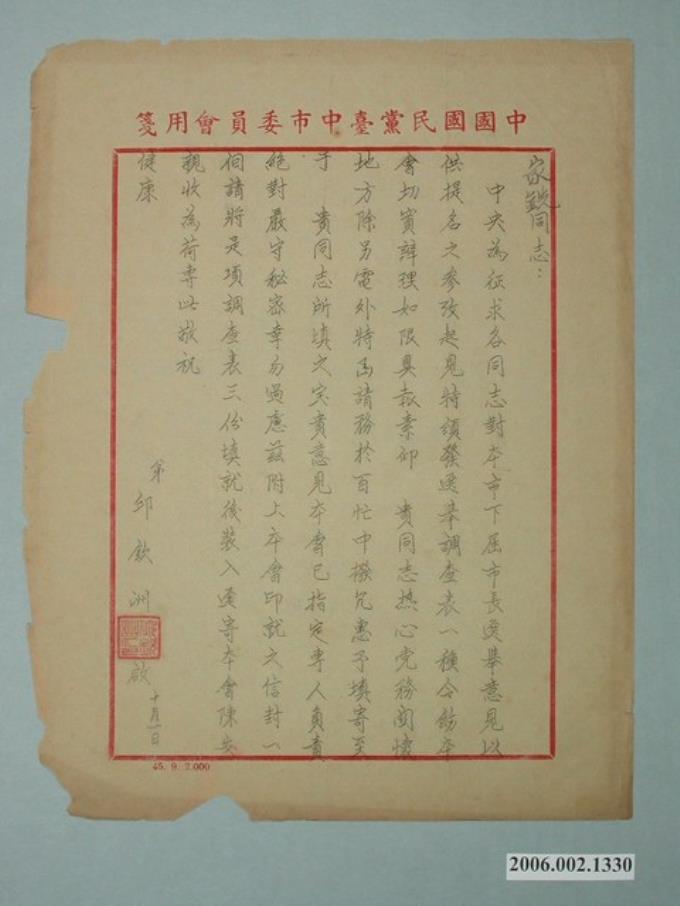 中國國民黨臺中市委員會用箋
家銳同志：
中央為征求各同志對本市下屆市長選舉意見以
供提名之參攷起見特頒發選舉調查表一種令飭本
會切實辦理如限具報素仰　貴同志熱心党務関懷
地方除另電外特函請務於百忙中撥冗惠予填寄至
于　貴同志所填之宝貴意見本會已指定專人負責
絕對嚴守秘密幸勿過慮茲附上本會印就之信封一
個請將是項調查表三份填就後裝入逕寄本會陳安
親收為荷專此敬祝
健康
弟邱欽洲　啟　十月一日
45. 9. 2.000
2006.002.1330